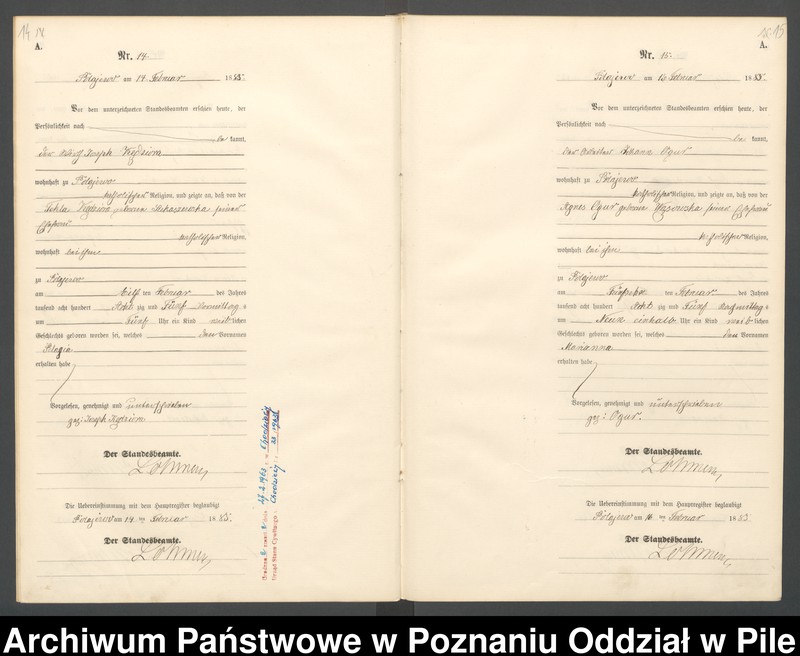 14
A.
Nr. 14.
Polajewo am 14. Februar 1885.
Vor dem unterzeichneten Standesbeamten erschien heute, der
Persönlichkeit nach
be kannt,
der Joseph Kędziora
wohnhaft zu Polajewo
katholischer Religion, und zeigte an, daß von der
Tekla Kędziora geborene seiner
Ehefrau
katholischer Religion,
wohnhaft bei ihm
zu Polajewo
am eilf ten Februar des Jahres
tausend acht hundert Acht zig und Fünf Vormittag s
um Fünf Uhr ein Kind weib lichen
Geschlechts geboren worden sei, welches den Vornamen
Pelagia
erhalten habe
Vorgelesen, genehmigt und unterschrieben
gez: Joseph Kędziora
Der Standesbeamte.
Die Uebereinstimmung mit dem Hauptregister beglaubigt
Polajewo am 14 ten Februar 1885.
Der Standesbeamte.
15
A.
Nr. 15.
Polajewo am 16. Februar 1885.
Vor dem unterzeichneten Standesbeamten erschien heute, der
Persönlichkeit nach
be kannt,
der Johann Ogur
wohnhaft zu Polajewo
katholischer Religion, und zeigte an, daß von der
Agnes Ogur geborene seiner Ehefrau
katholischer Religion,
wohnhaft bei ihm
zu Polajewo
am ten Februar des Jahres
tausend acht hundert Acht zig und Fünf Nachmittag s
um Neun einhalb Uhr ein Kind weib lichen
Geschlechts geboren worden sei, welches den Vornamen
Marianna
erhalten habe
Vorgelesen, genehmigt und unterschrieben
gez: Ogur.
Der Standesbeamte.
Die Uebereinstimmung mit dem Hauptregister beglaubigt
Polajewo am 16 ten Februar 1885
Der Standesbeamte.
Archiwum Państwowe w Poznaniu Oddział w Pile